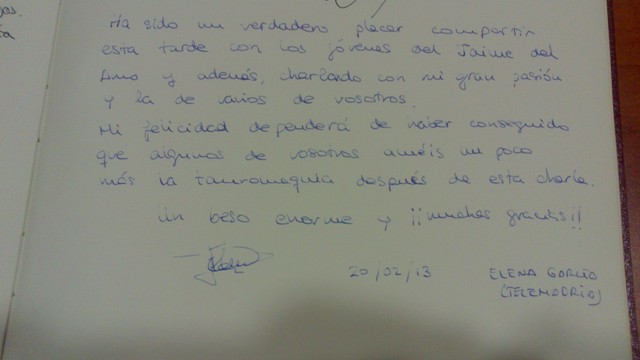 Ha sido un verdadero placer compartir
esta tarde con los jóvenes del Jaime del
Amo y además, charlando con mi gran pasión
y la de varios de vosotros.
Mi felicidad dependerá de haber conseguido
que algunos de vosotros améis un poco
más la tauromaquia después de esta charla.
Un beso enorme y ¡¡muchas gracias!!
20/02/13 ELENA
(TELEMADRID)